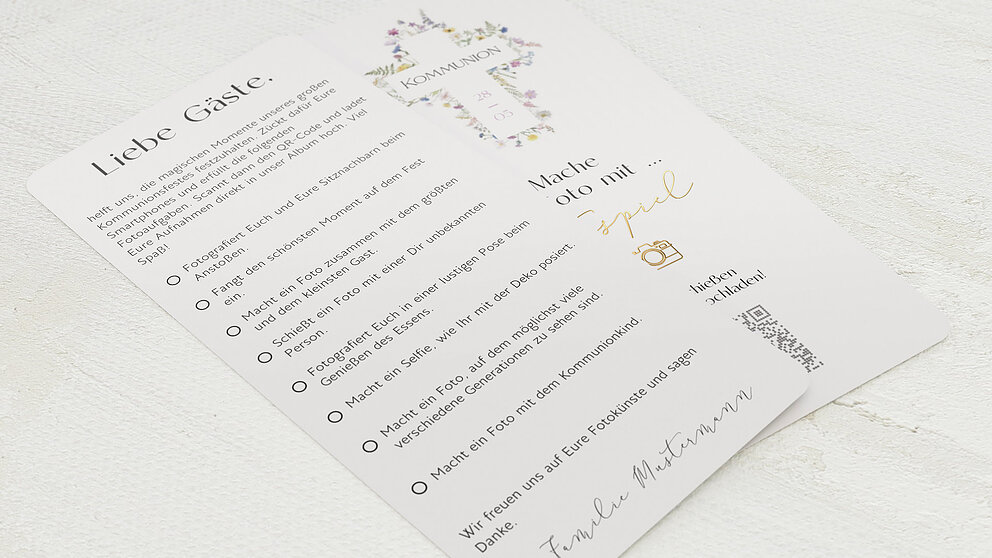 Liebe Gäste,
helft uns, die magischen Momente unseres großen
Kommunionsfestes festzuhalten. Zückt dafür Eure
Smartphones und erfüllt die folgenden
Fotoaufgaben. Scannt dann den QR-Code und ladet
Eure Aufnahmen direkt in unser Album hoch. Viel
Spaß!
Fotografiert Euch und Eure Sitznachbarn beim
Anstoßen.
Fangt den schönsten Moment auf dem Fest
ein.
Macht ein Foto zusammen mit dem größten
und dem kleinsten Gast.
Schießt ein Foto mit einer Dir unbekannten
Person.
Fotografiert Euch in einer lustigen Pose beim
Genießen des Essens.
Macht ein Selfie, wie Ihr mit der Deko posiert.
Macht ein Foto, auf dem möglichst viele
verschiedene Generationen zu sehen sind.
Macht ein Foto mit dem Kommunionkind.
Wir freuen uns auf Eure Fotokünste und sagen
Danke.
Familie Mustermann
KOMMUNION
28
05
Mache
oto mit ...
spiel
hießen
ochladen!